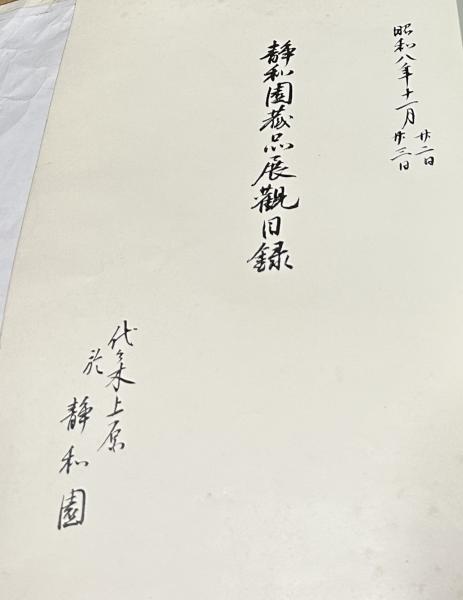 昭和八年十一月廿二日
廿三日
靜和園藏品展觀目録
代々木上原
於
靜和園